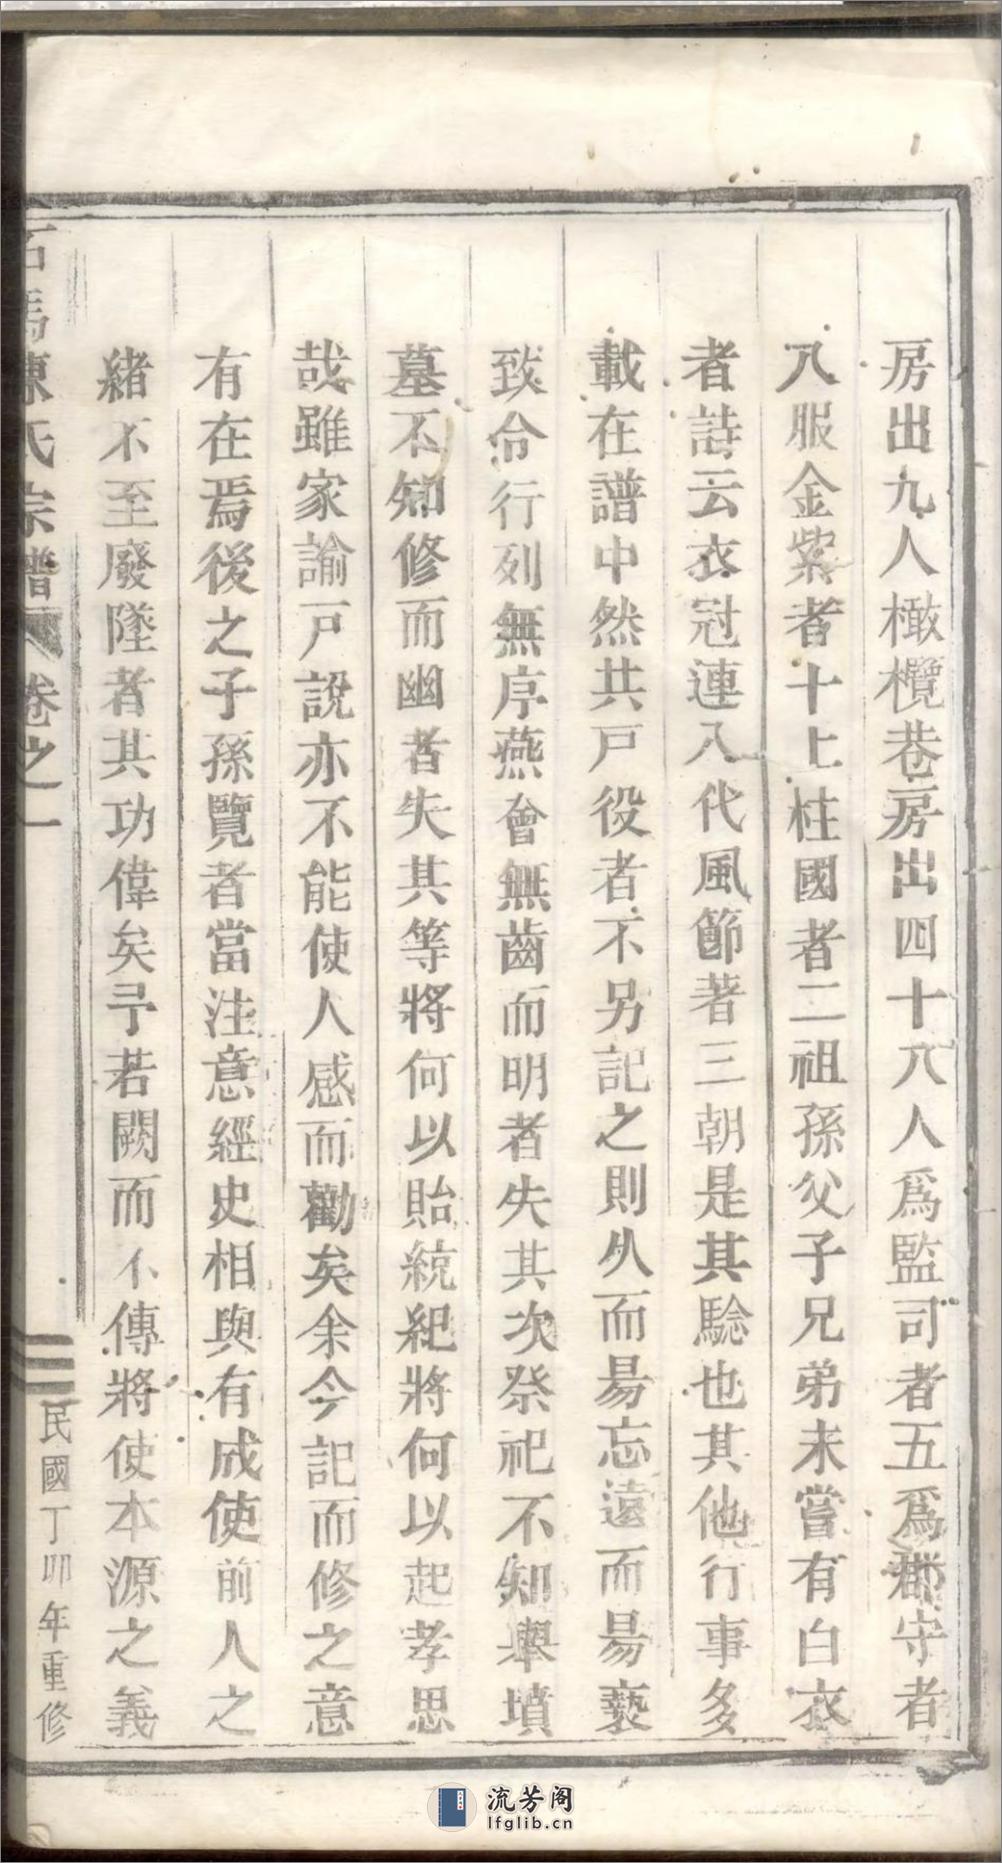 房出九人橄欖巷房出四十八人爲監司者五爲郡守者
八服金紫者十上柱國者二祖孫父子兄弟未嘗有白衣
者詩云衣冠連八代風節著三朝是其驗也其他行事多
載在譜中然共戸役者不另記之則久而昜忘遠而昜褻
致令行列無序燕會無齒而明者失其次祭祀不知舉墳
墓不知修而幽者失其等將何以貽統紀將何以起孝思
哉雖家諭戸說亦不能使人感而勸矣余今記而修之意
有在焉後之子孫覽者當注意經史相與有成使前人之
緒不至廢墜者其功偉矣予若闕而不傳將使本源之義
石馬陳氏宗譜 卷之一 民國丁卯年重修
流芳阁
lfglib.cn